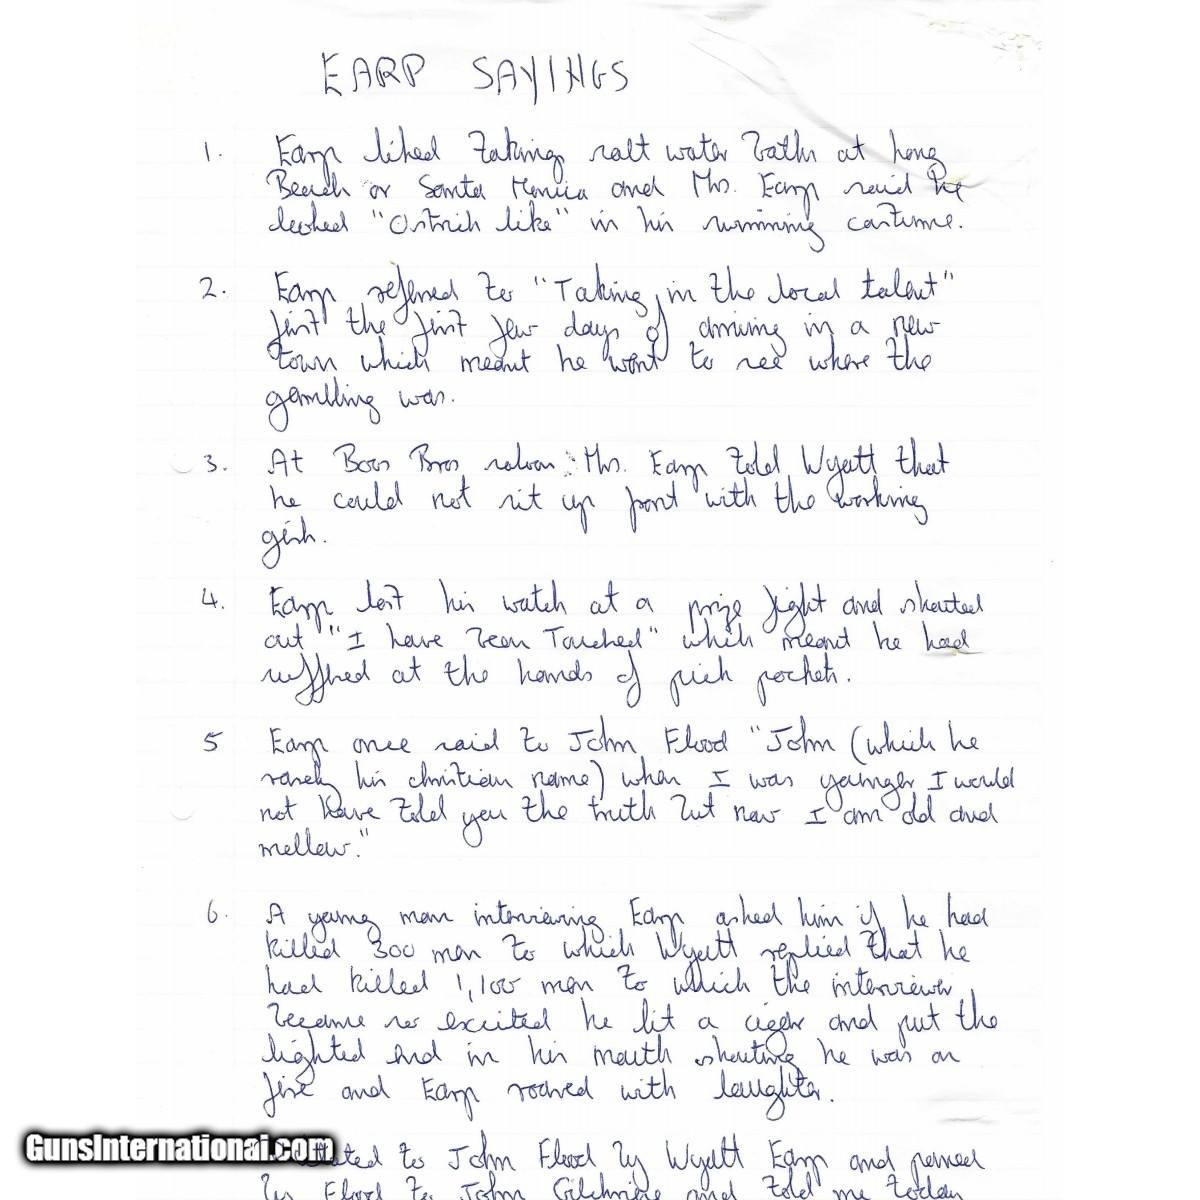 EARP SAYINGS
1. Earp liked taking salt water baths at Long
Beach or Santa Monica and Mrs. Earp said he
looked "Ostrich like" in his swimming costume.
2. Earp referred to "Taking in the local talent"
first the first few days of arriving in a new
town which meant he went to see where the
gambling was.
3. At Boos Bros saloon Mrs. Earp told Wyatt that
he could not sit up front with the working
girls.
4. Earp lost his watch at a prize fight and shouted
out "I have been Touched" which meant he had
suffered at the hands of pick pockets.
5 Earp once said to John Flood "John (which he
rarely his christian name) when I was younger I would
not have told you the truth but now I am old and
mellow."
6. A young man interviewing Earp asked him if he had
killed 300 men to which Wyatt replied that he
had killed 1,100 men to which the interviewer
became so excited he lit a cigar and put the
lighted end in his mouth shouting he was on
fire and Earp roared with laughter.
to John Flood by Wyatt Earp and penned
by Flood to John Gilchriese and told me today
GunsInternational.com